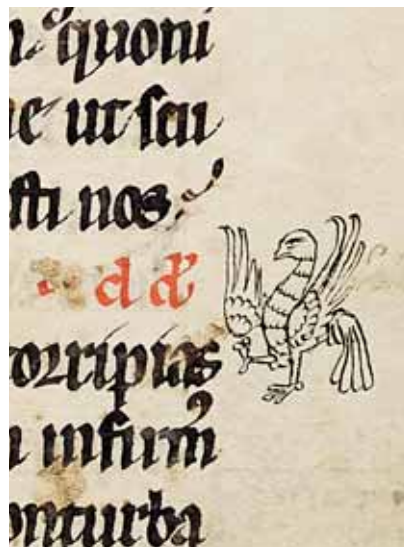 quoni
e ut scu
sti nos
orripias
infirmꝰ
onturba